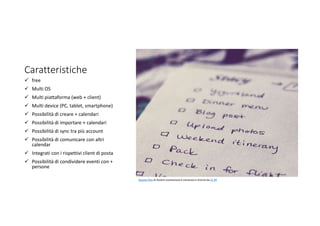 Caratteristiche
✓ free
✓ Multi OS
✓ Multi piattaforma (web + client)
✓ Multi device (PC, tablet, smartphone)
✓ Possibilità di creare + calendari
✓ Possibilità di importare + calendari
✓ Possibilità di sync tra più account
✓ Possibilità di comunicare con altri
calendar
✓ Integrati con i rispettivi client di posta
✓ Possibilità di condividere eventi con +
persone
Dinner menu
Blog post
Upload photos
Weekend itinerary
Pack
Check in for flight